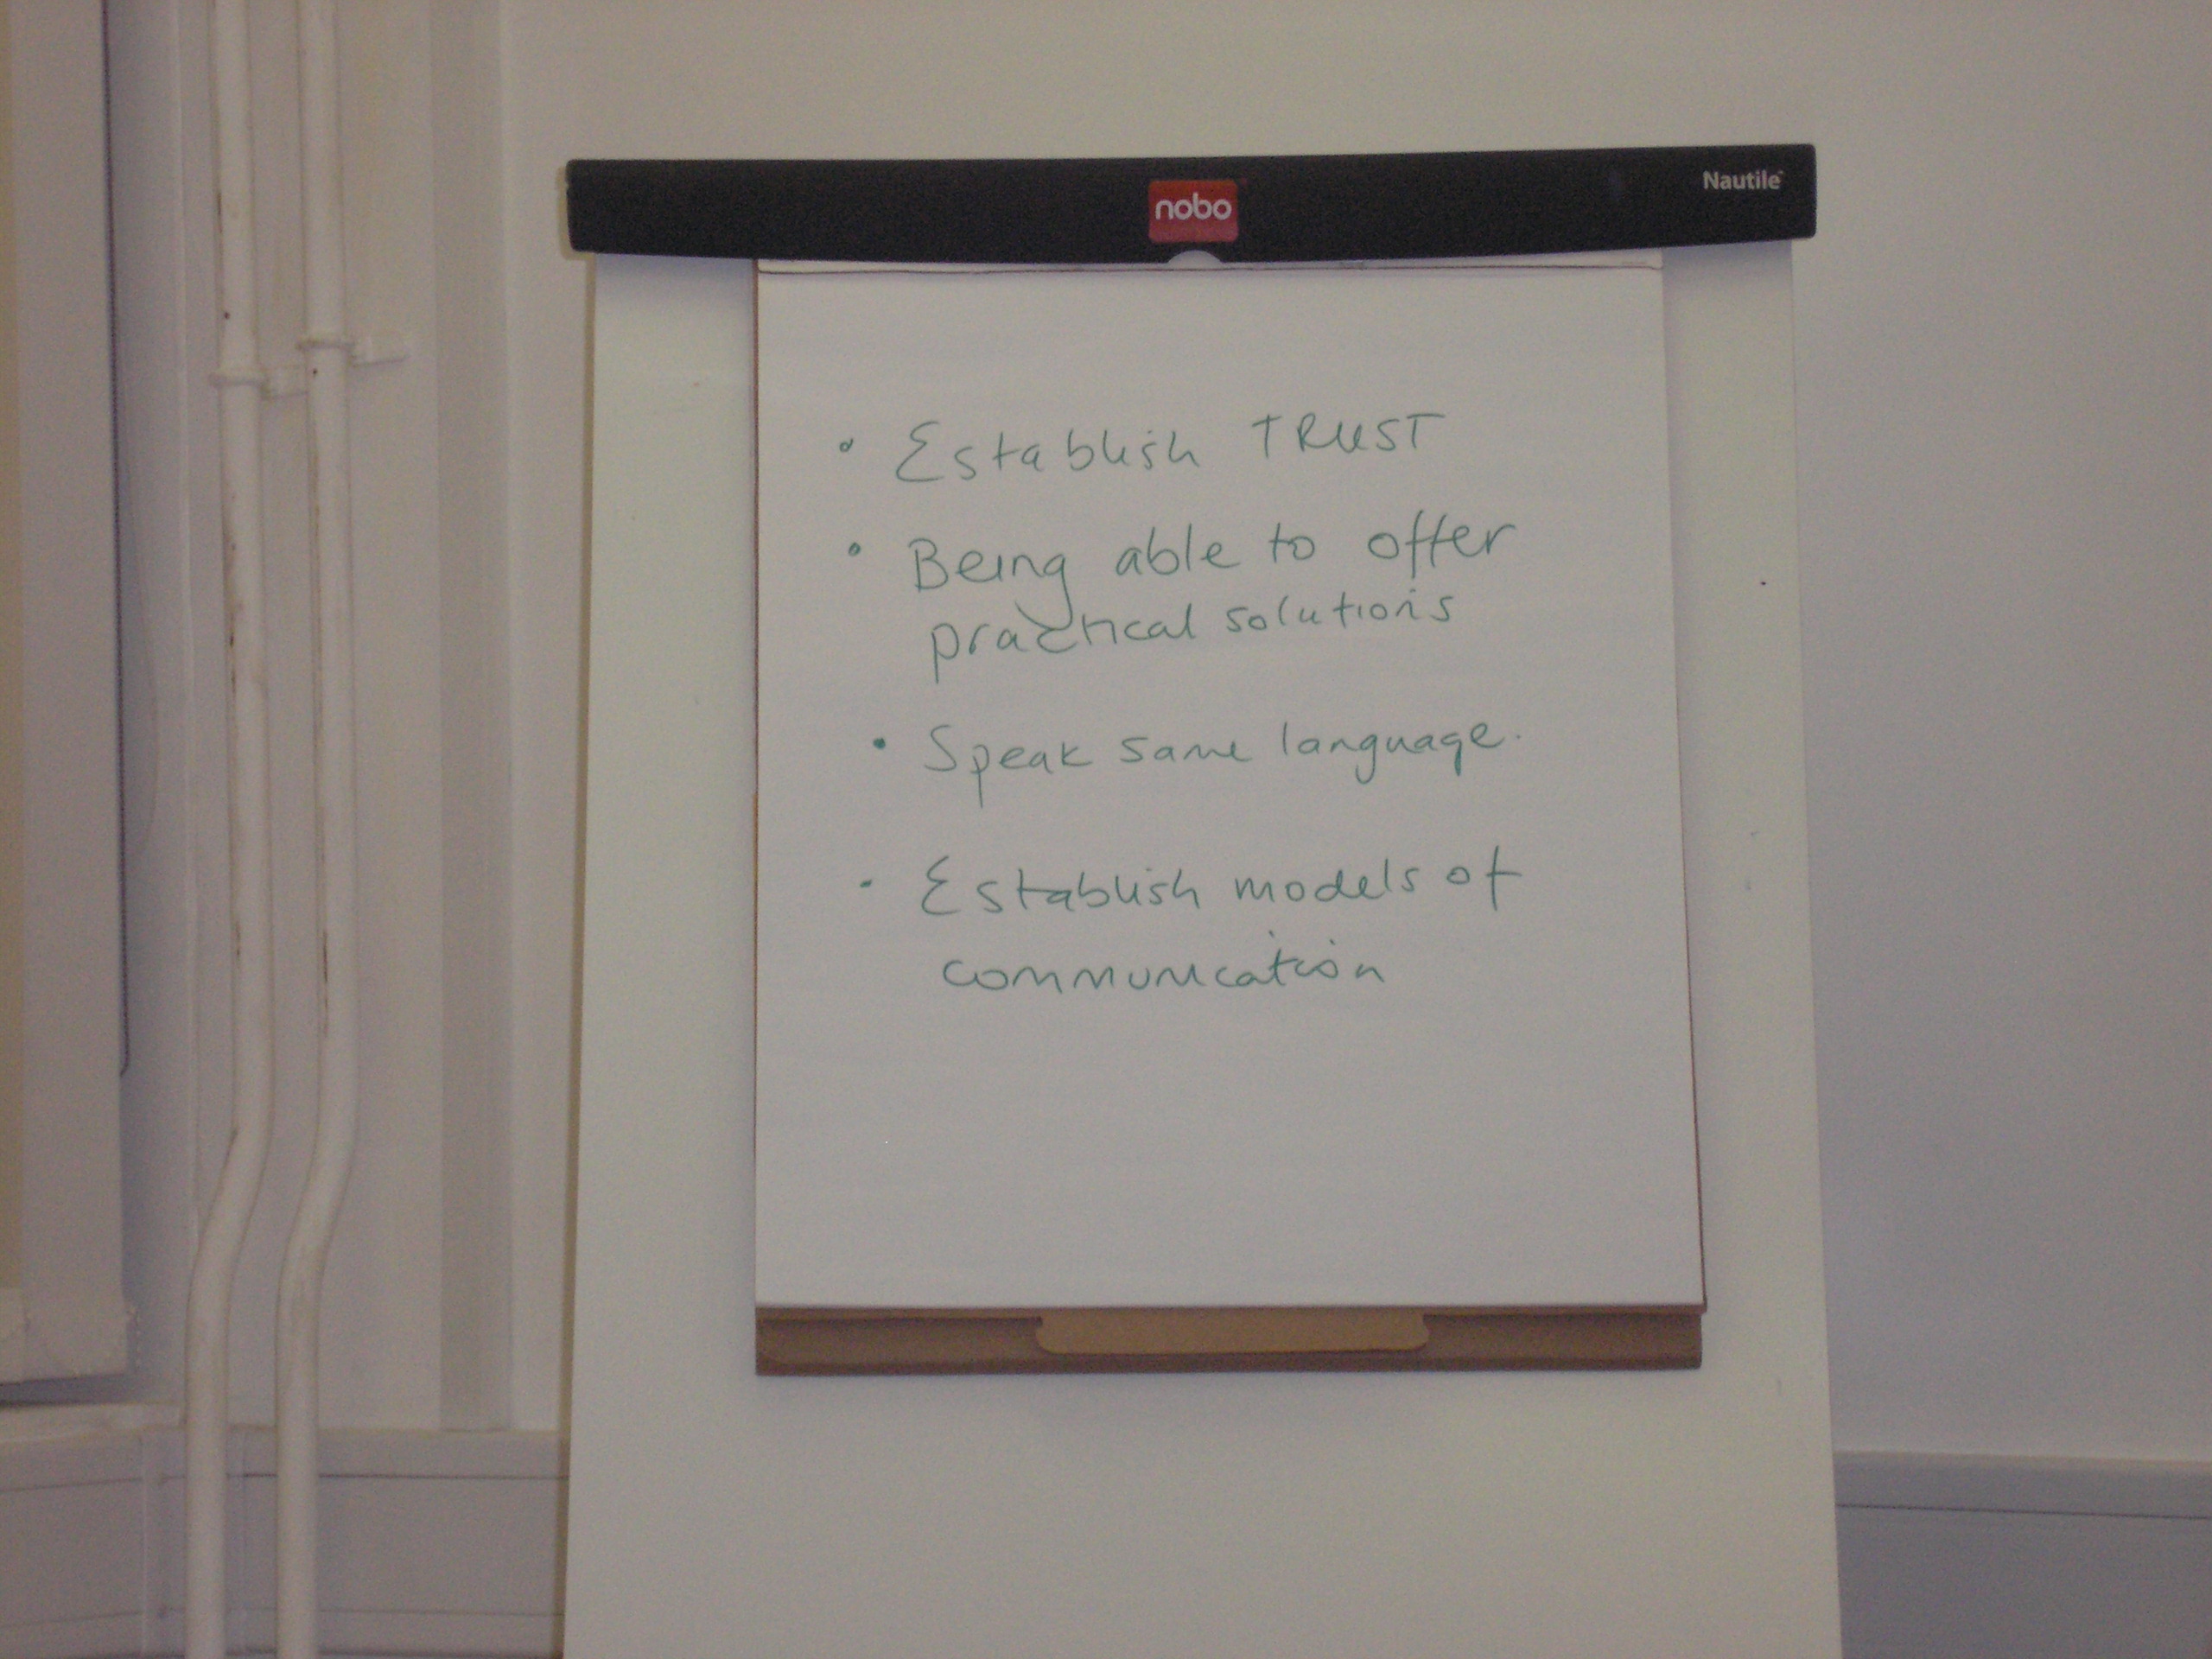 nobo
Nautile
• Establish TRUST
• Being able to offer
practical solutions
• Speak same language.
• Establish models of
communication